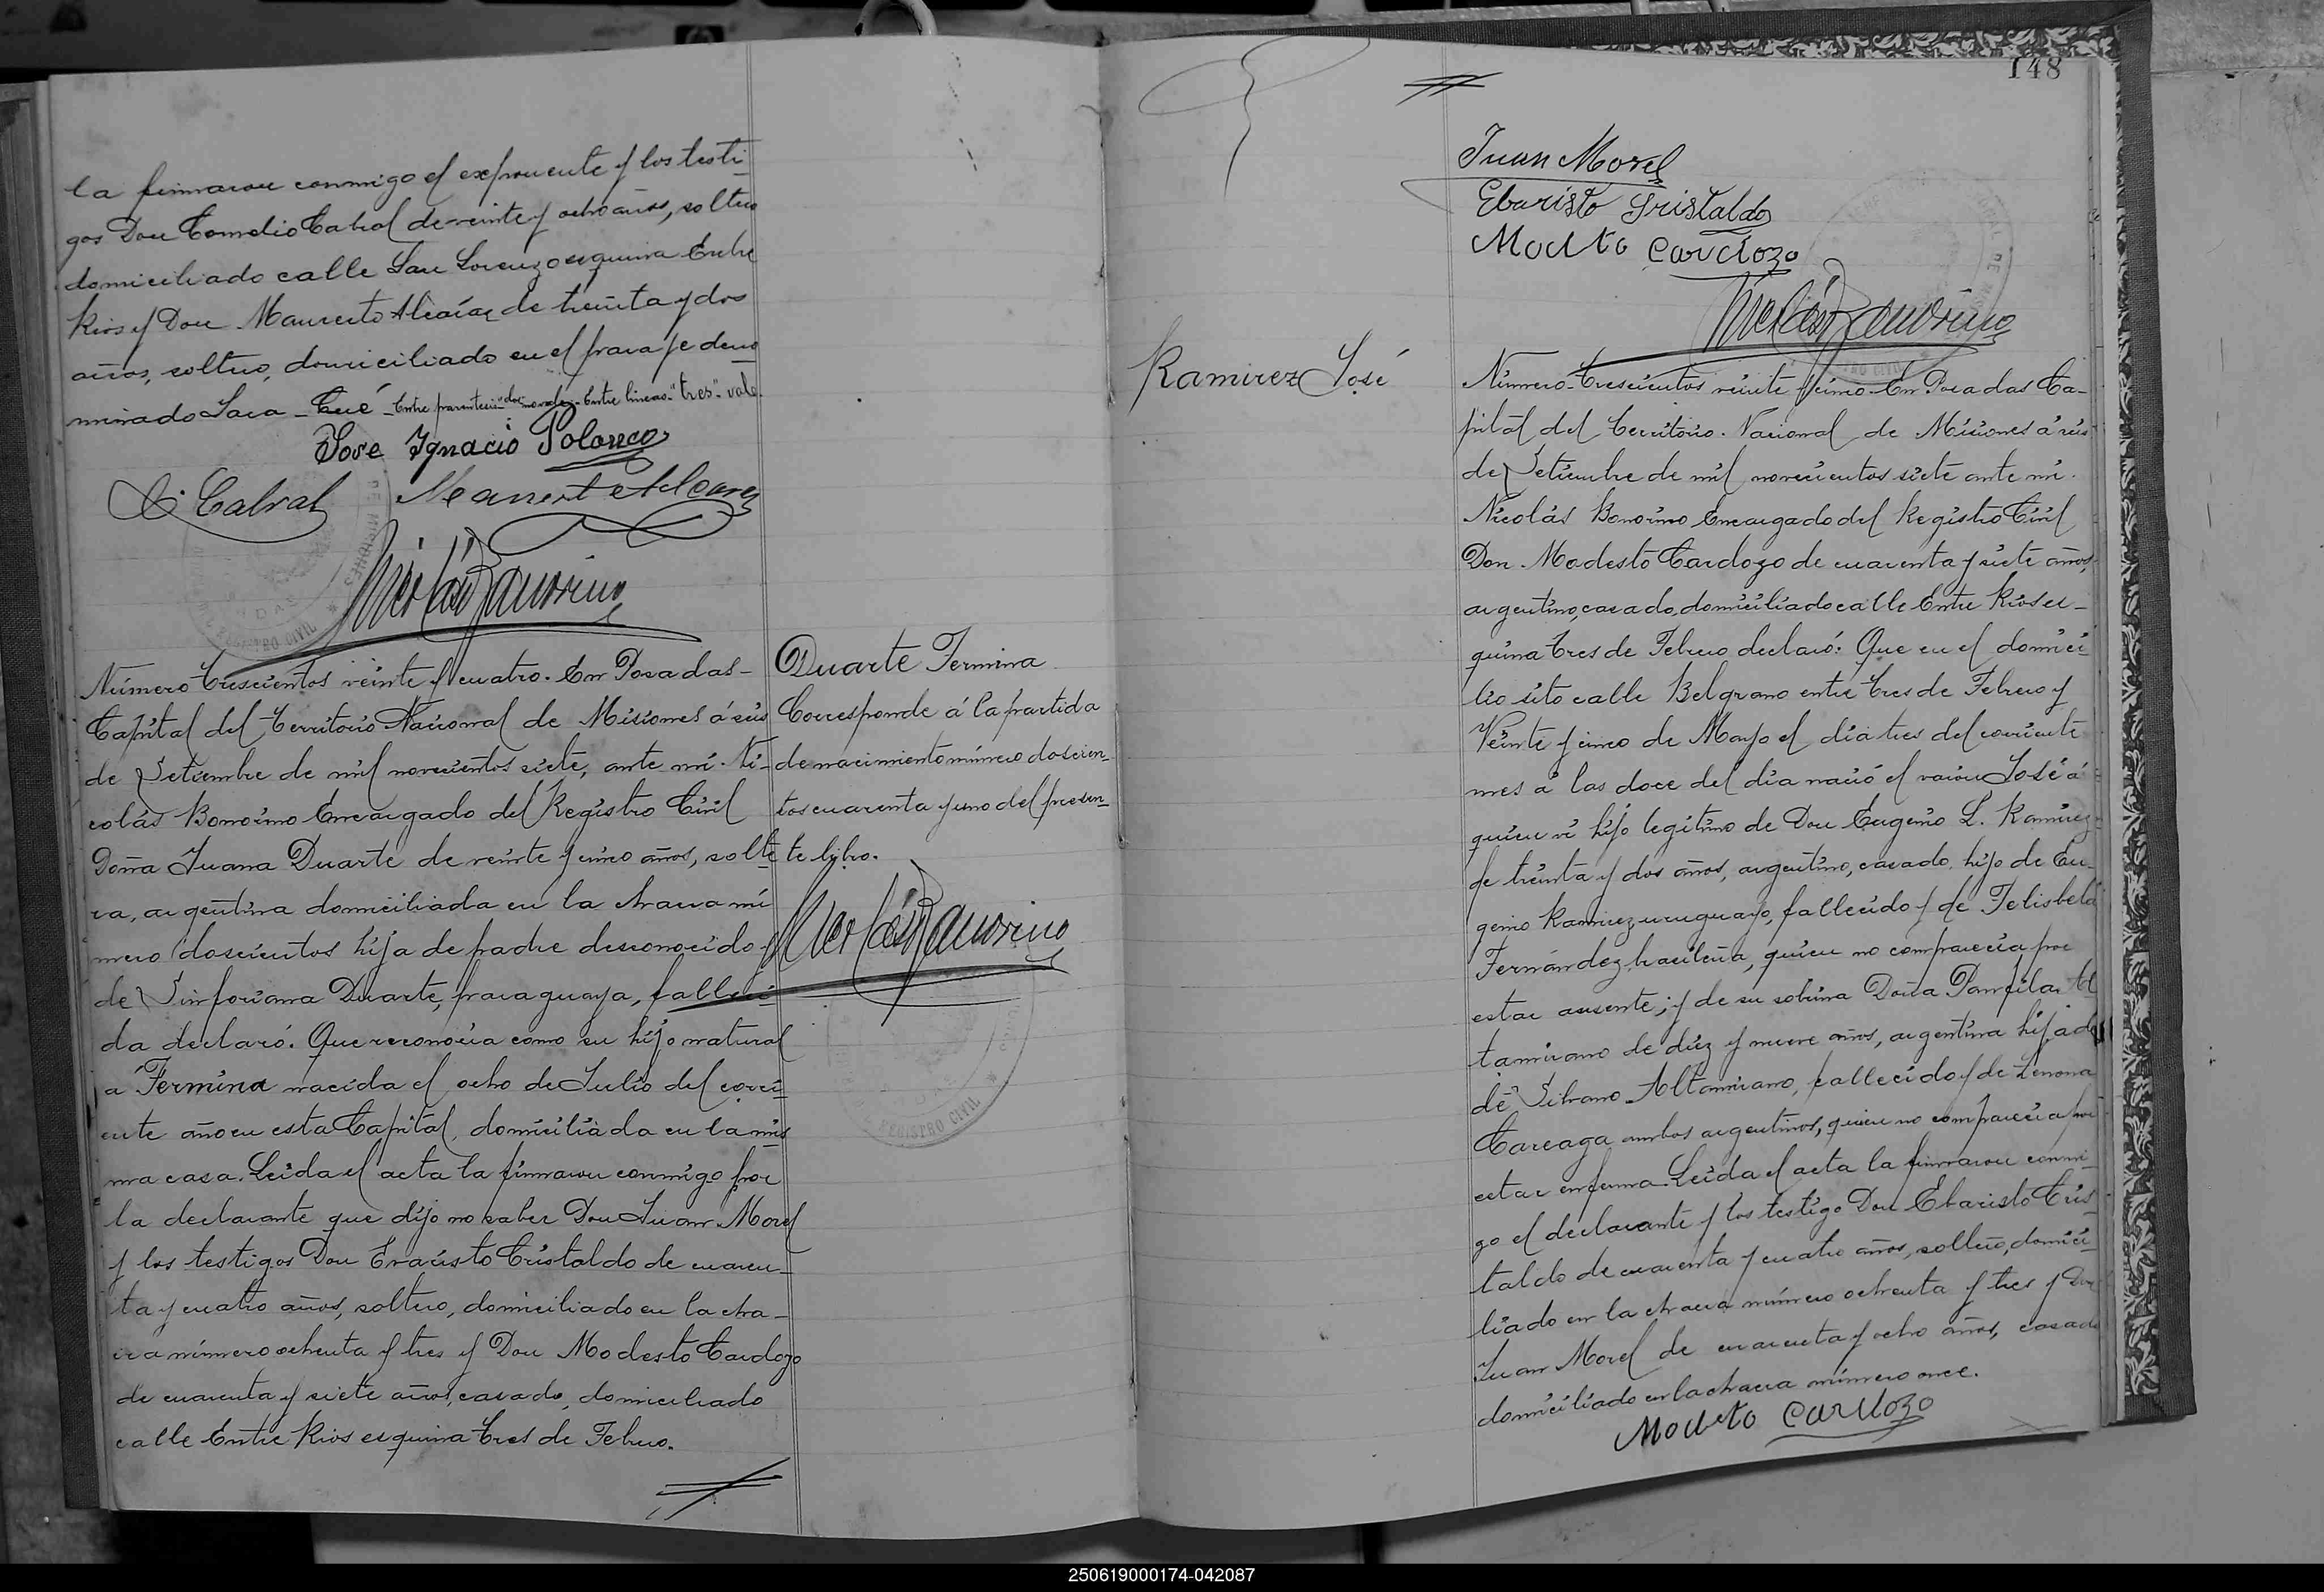 la firmaron conmigo el exponente y los testi-
gos Don Cornelio Cabral de veinte y ocho años, soltero
domiciliado calle San Lorenzo esquina Entre
Rios y Don Manuerto Alcaráz de treinta y dos
años, soltero, domiciliado en el paraje deno-
minado Lara - Cué - Entre parentesis "dos" no vale - Entre lineas - "tres" - vale.
Jose Ignacio Polanco
C. Cabral
Nicolás Bonorino
Número trescientos veinte y cuatro. En Posadas -
Capital del Territorio Nacional de Misiones á seis
de Setiembre de mil novecientos siete, ante mí Ni-
colás Bonorino Encargado del Registro Civil
Doña Juana Duarte de veinte y cinco años, solte
ra, argentina domiciliada en la chacra nú
mero doscientos hija de padre desconocido y
de Sinforiana Duarte, paraguaya, falleci-
da declaró. Que reconocia como su hijo natural
a Fermina nacida el ocho de Julio del corri-
ente año en esta Capital, domiciliada en la mis
ma casa. Leida el acta la firmaron conmigo por
la declarante que dijo no saber Don Juan Morel
y los testigos Don Evaristo Cristaldo de cuaren-
ta y cuatro años, soltero, domiciliado en la cha-
cra número ochenta y tres y Don Modesto Cardozo
de cuarenta y siete años, casado, domiciliado
calle Entre Rios esquina tres de Febrero.
Duarte Fermina
Corresponde á la partida
de nacimiento número doscien-
tos cuarenta y uno del presen-
te libro.
Nicolás Bonorino
REGISTRO CIVIL
148
Juan Morel
Ebaristo Gristaldo
Modeto Cardozo
Nicolás Bonorino
Ramirez José
Número trescientos veinte y cinco - En Posadas Ca-
pital del Territorio Nacional de Misiones á seis
de Setiembre de mil novecientos siete ante mi
Nicolás Bonorino Encargado del Registro Civil
Don Modesto Cardozo de cuarenta y siete años,
argentino, casado, domiciliado calle Entre Rios es-
quina tres de Febrero declaró: Que en el domici-
lio sito calle Belgrano entre tres de Febrero y
Veinte y cinco de Mayo el dia tres del corriente
mes á las doce del dia nació el varon José á
quien vi hijo legitimo de Don Eugenio L. Ramirez
de treinta y dos años, argentino, casado, hijo de Eu-
genio Ramirez uruguayo, fallecido y de Felisbela
Fernández brasileña, quien no comparecia por
estar ausente; y de su sobrina Doña Panfila Al
tamirano de diez y nueve años, argentina hija de
de Silvano Altamirano, fallecido y de Zenona
Careaga ambos argentinos, quien no comparecia por
estar enferma. Leida el acta la firmaron conmi-
go el declarante y los testigo Don Ebaristo Cris-
taldo de cuarenta y cuatro años, soltero, domici-
liado en la chacra número ochenta y tres y Don
Juan Morel de cuarenta y ocho años, casado
domiciliado en la chacra número once.
Modeto Cardozo
250619000174-042087